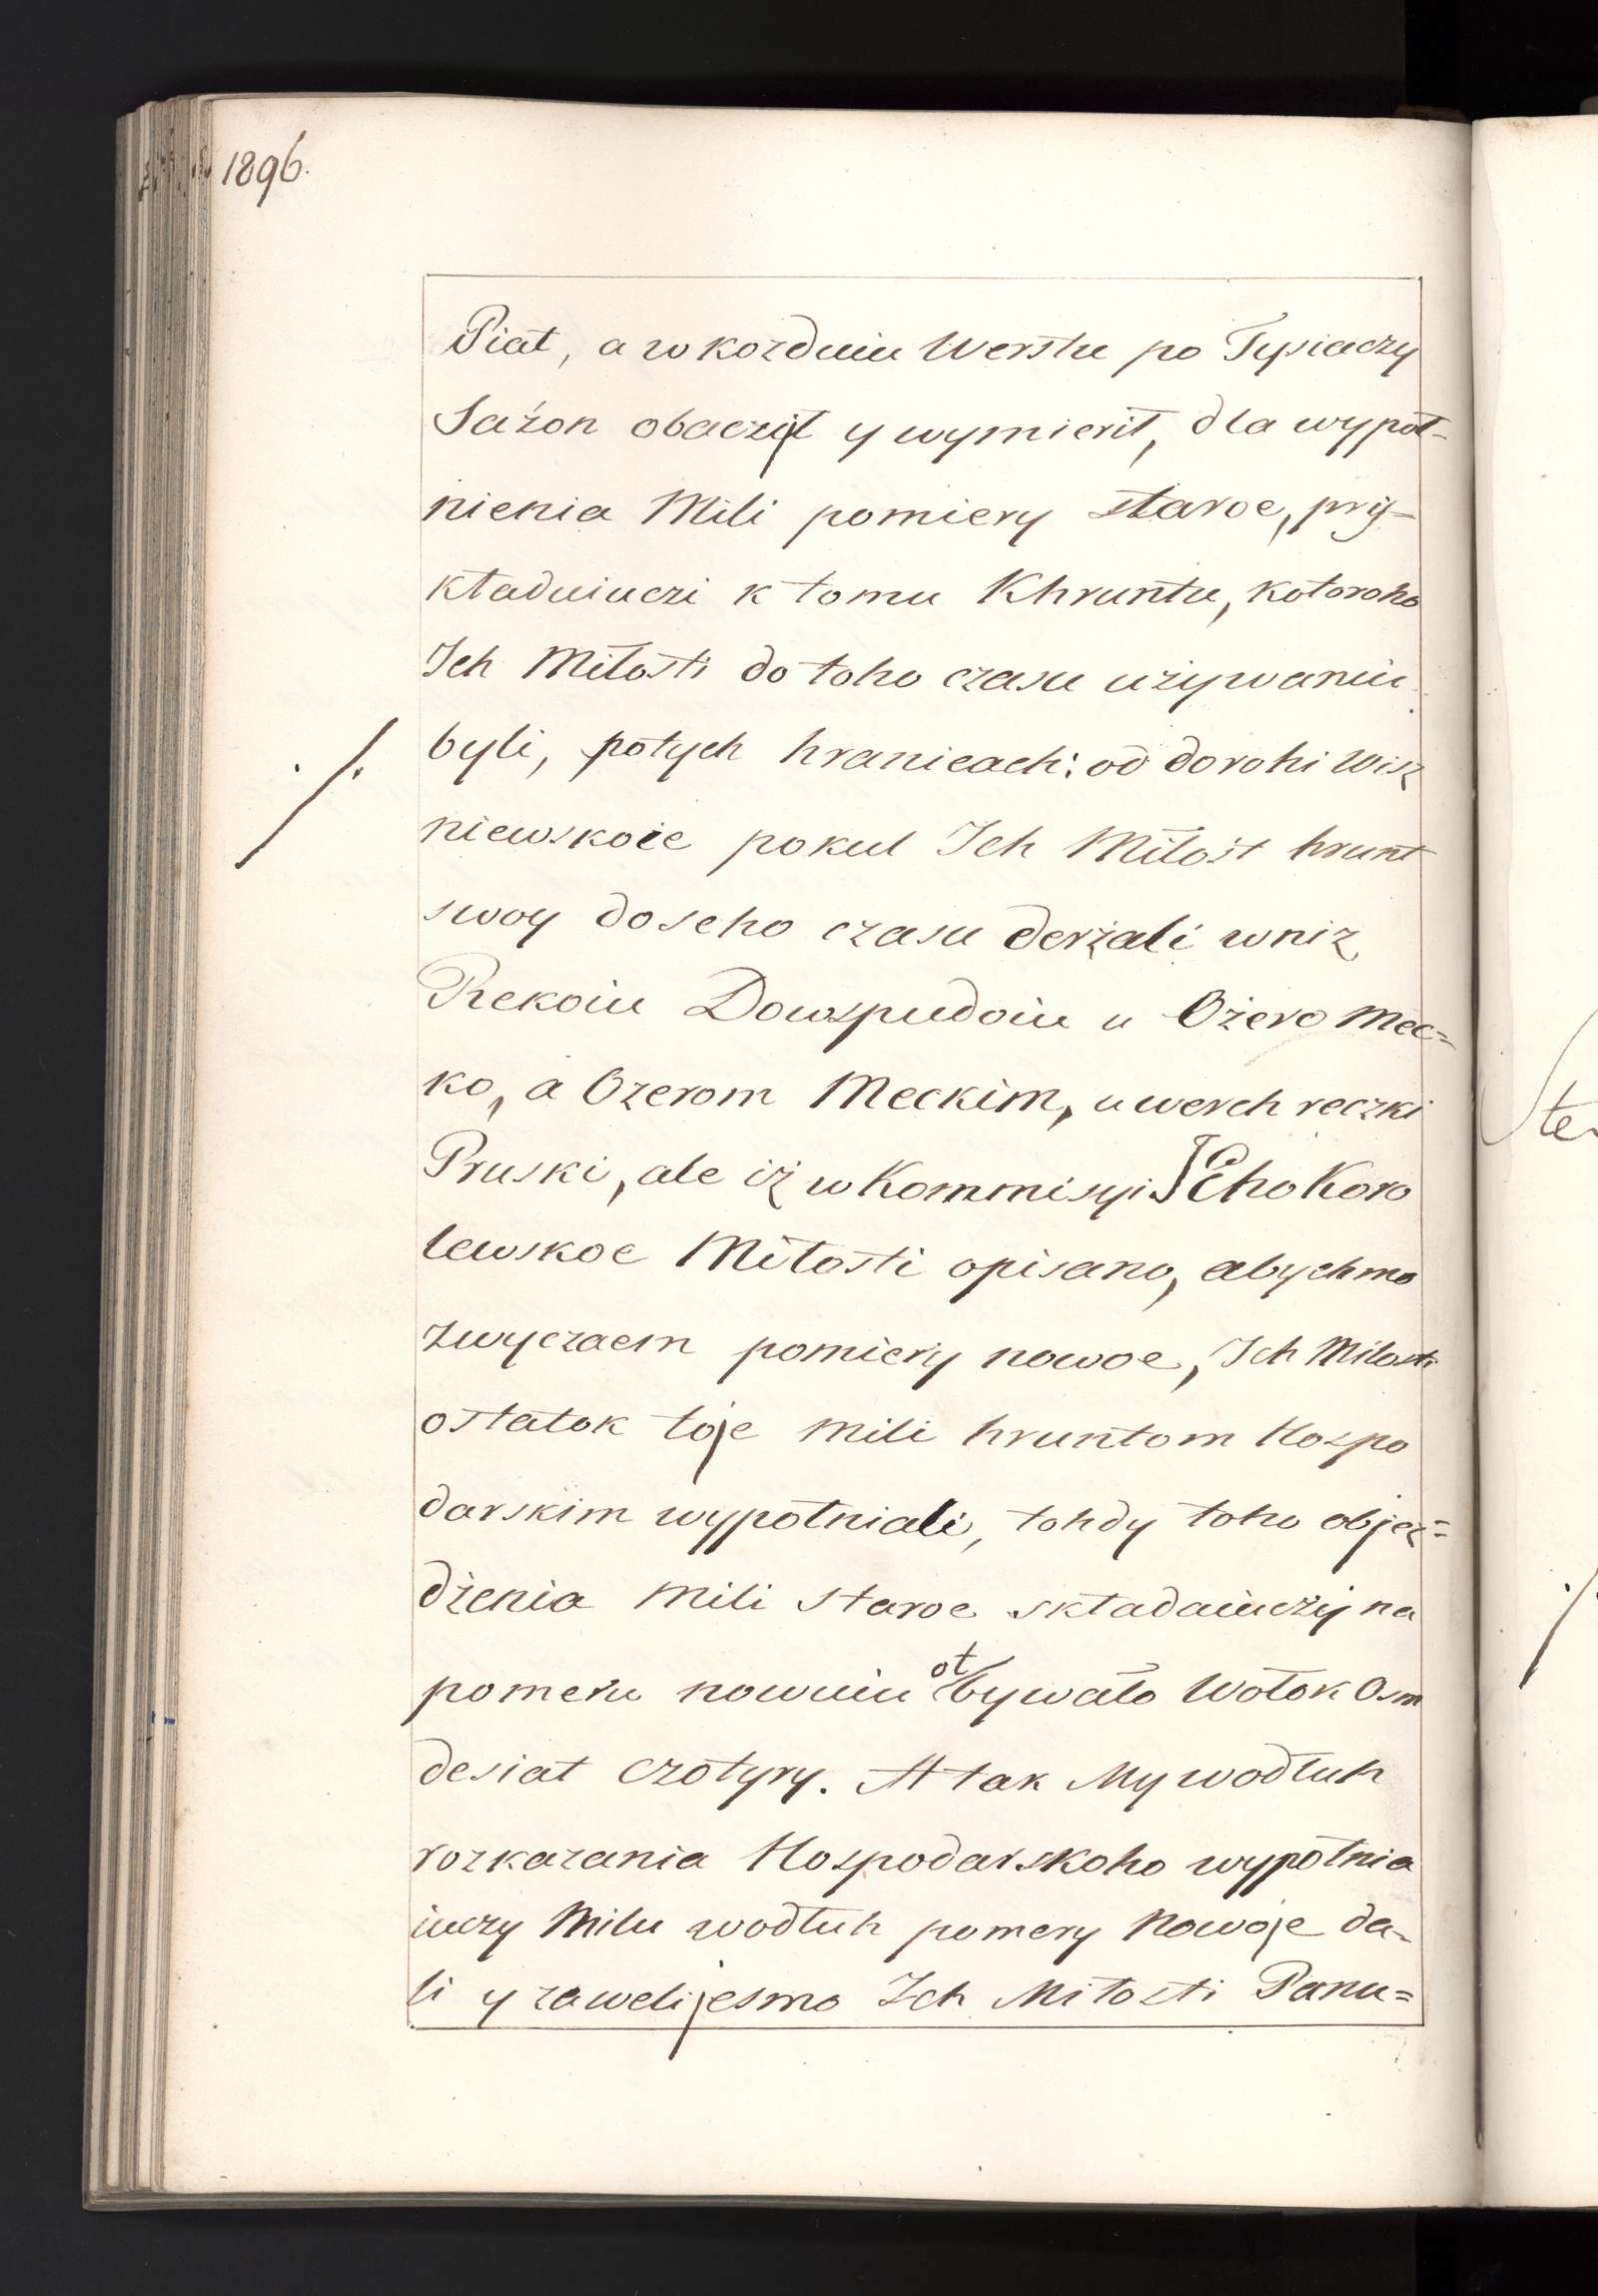 1896.
Piat, a w kozduiu Werstu po Tysiaczy
Sażon obaczył y wymierił, dla wypoł-
nienia Mili pomiery staroe, pry=
kładuiuczi k tomu Khruntu, kotoroho
Ich Miłosti do toho czasu używaniu
byli, potych hranicach: od dorohi Wisz
niewskoie pokul Ich Miłost hrunt
swoy doseho czasu derżali wniz
Rekoiu Dowspudoiu u Ożero Mec=
ko, a Ozerom Meckim, uwerch reczki
Pruski, ale iż w Kommisyi Jeho Koro
lewskoe Miłosti opisano, abychmo
zwyczaem pomiery nowoe, Ich Miłosti
ostatok toje mili hruntom Hospo
darskim wypołniali, tohdy toho objez=
dżenia Mili staroe składaiuczy na
pomeru nowuiu otbywało Wołok Osm
desiat czotyry. A tak My wodłuh
rozkazania Hospodarskoho wypołnia
iuczy Milu wodłuh pomery Nowoje da-
li y zawelijesmo Ich Miłosti Panu=
Ste